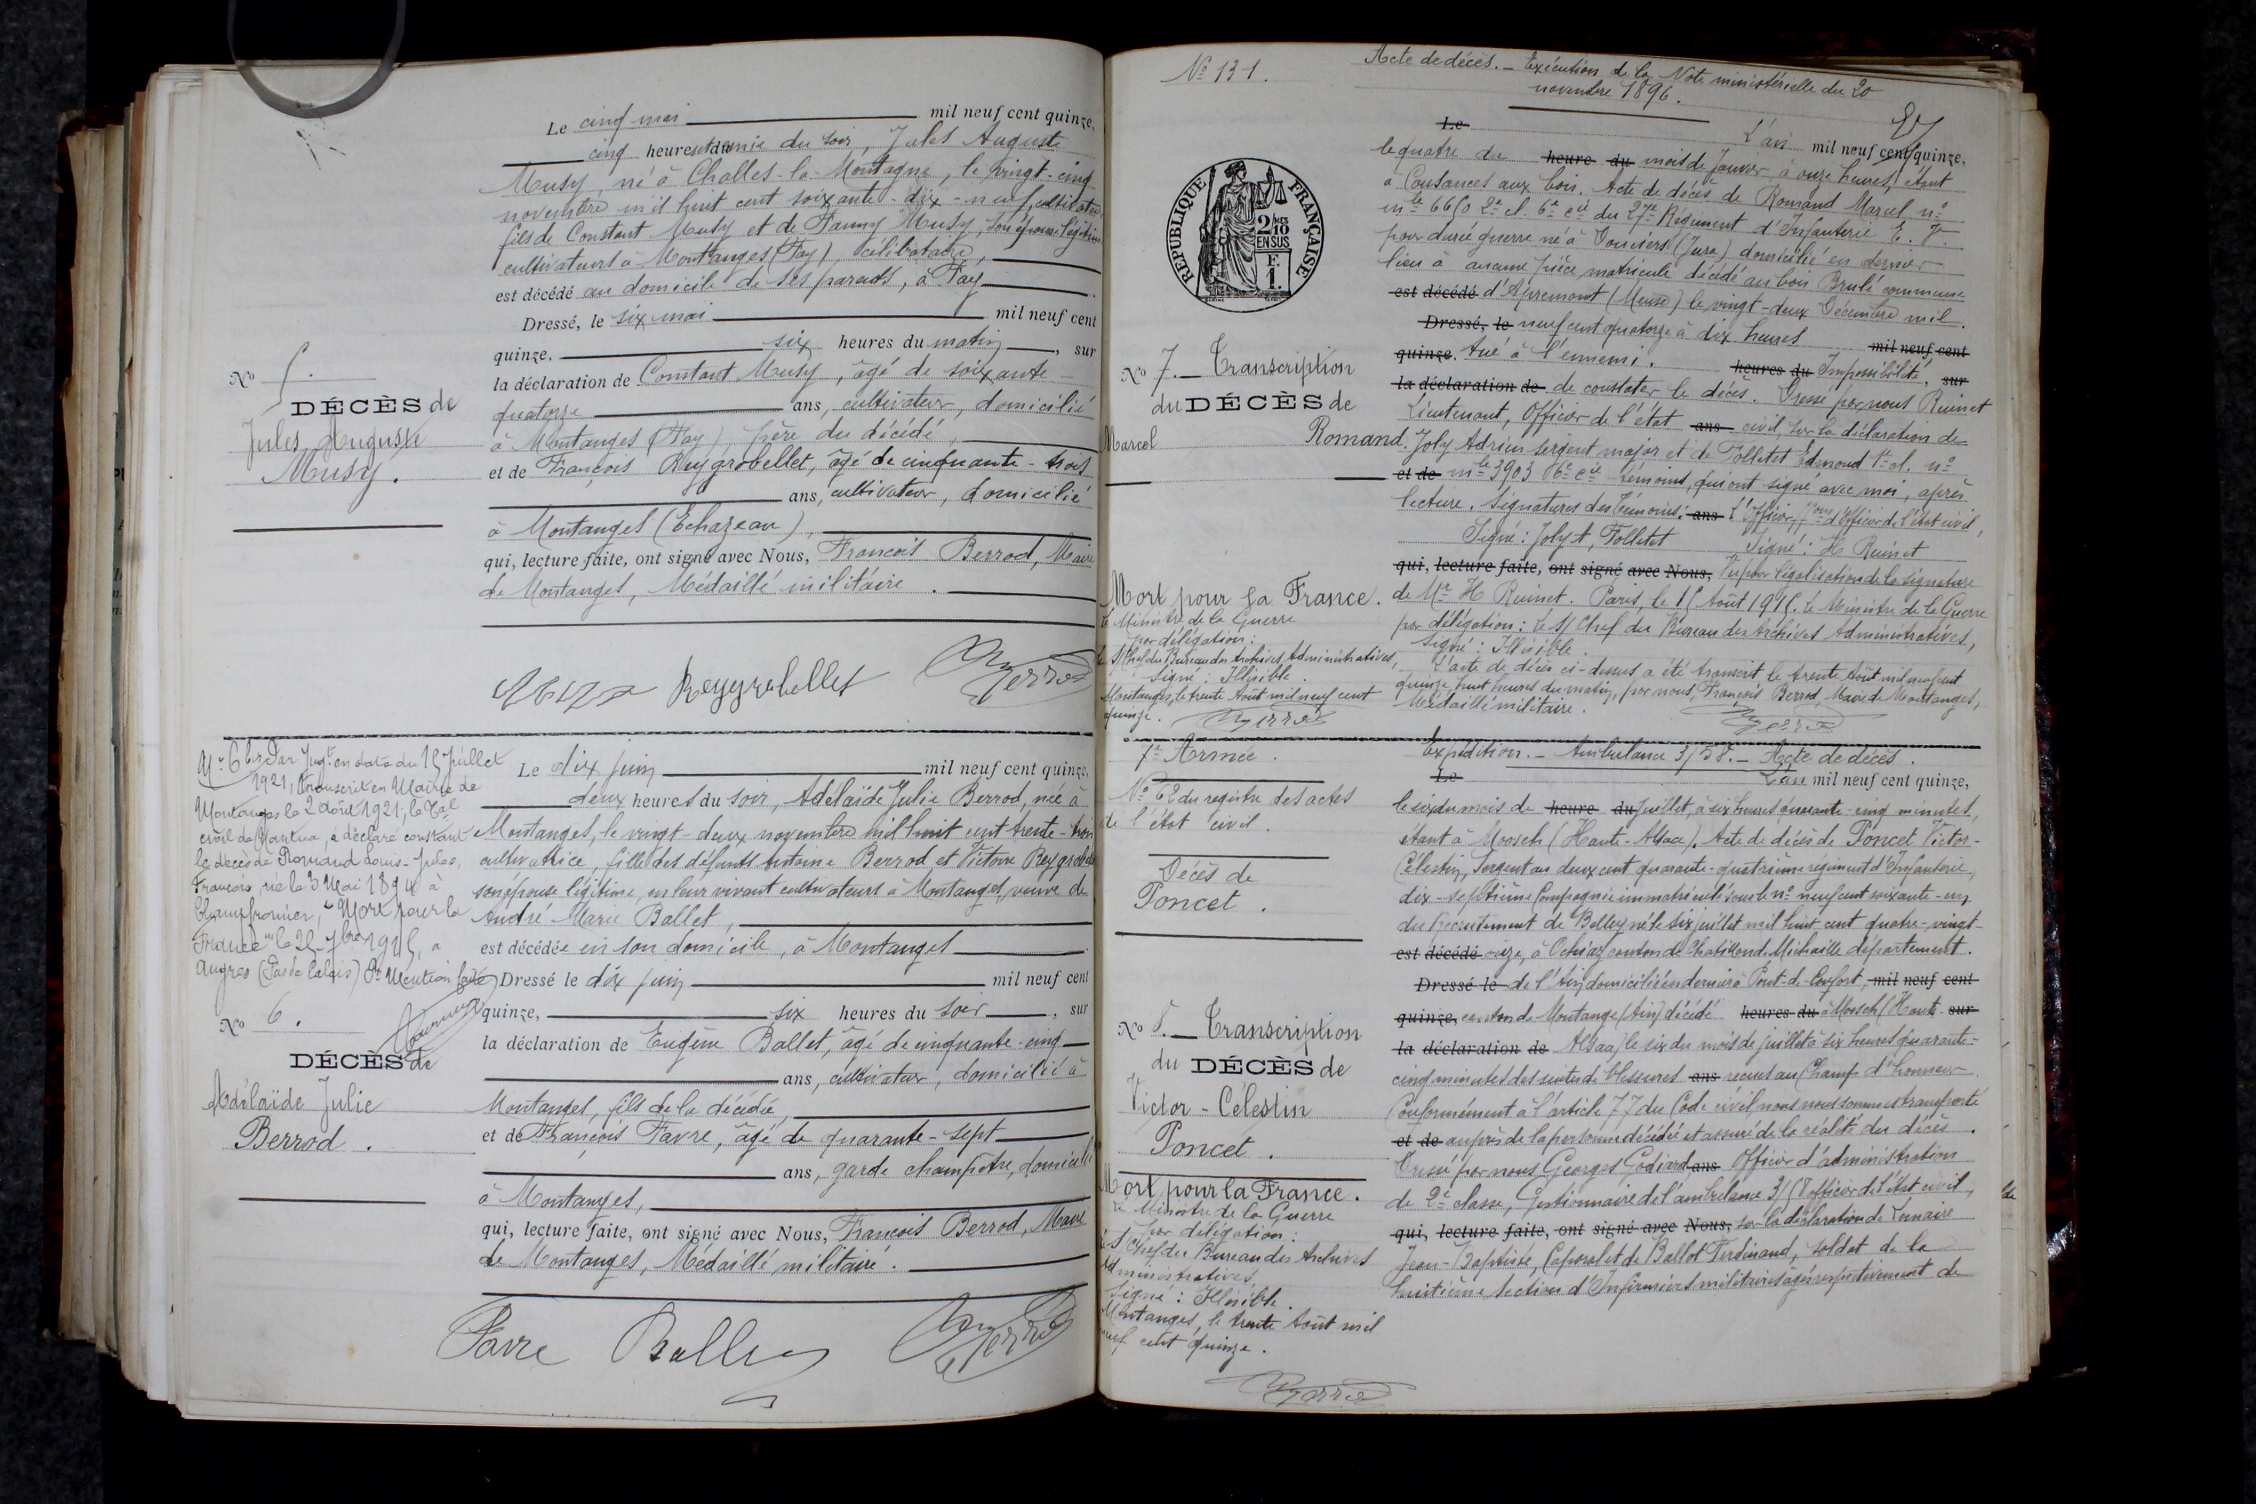 Le cinq mai mil neuf cent quinze,
cinq heures et demie du soir, Jules Auguste
Musy, né à Challes-la-Montagne, le vingt-cinq
novembre mil huit cent soixante-dix-neuf, cultivateur
fils de Constant Musy et de Fanny Musy, son épouse légitime
cultivateurs à Montanges (Fay), célibataire,
est décédé au domicile de ses parents, à Fay
Dressé, le six mai mil neuf cent
quinze, six heures du matin, sur
la déclaration de Constant Musy, âgé de soixante-
quatorze ans, cultivateur, domicilié
à Montanges (Fay), père du décédé,
et de François Reygrobellet, âgé de cinquante-trois
ans, cultivateur, domicilié
à Montanges (Echazeau),
qui, lecture faite, ont signé avec Nous, François Berrod, Maire
de Montanges, Médaillé militaire.
Reygrobellet Berrod
No 5.
DÉCÈS de
Jules Auguste
Musy.
No 6 bis Par Jugt en date du 15 Juillet
1921, transcrit en Mairie de
Montanges le 2 août 1921, le Tal
civil de Nantua, a déclaré constant
le décès de Romand Louis-Jules,
François, né le 3 Mai 1894 à
Champfromier, "Mort pour la
France" le 25 7bre 1915, à
Angres (Pas de Calais) Mention faite
No 6.
DÉCÈS de
Adélaïde Julie
Berrod.
Le dix juin mil neuf cent quinze,
deux heures du soir, Adélaïde Julie Berrod, née à
Montanges, le vingt-deux novembre mil huit cent trente-trois
cultivatrice, fille des défunts Antoine Berrod et Victoire Reygrobellet
son épouse légitime, en leur vivant cultivateurs à Montanges, veuve de
André Marie Ballet,
est décédée en son domicile, à Montanges
Dressé le dix juin mil neuf cent
quinze, six heures du soir, sur
la déclaration de Eugène Ballet, âgé de cinquante-cinq
ans, cultivateur, domicilié à
Montanges, fils de la décédée,
et de François Favre, âgé de quarante-sept
ans, garde champêtre, domicilié
à Montanges,
qui, lecture faite, ont signé avec Nous, François Berrod, Maire
de Montanges, Médaillé militaire.
Favre Ballet Berrod
No 131.
Acte de décès. - Exécution de la Note ministérielle du 20
novembre 1896.
RÉPUBLIQUE FRANÇAISE
2/10
EN SUS
F.
1.
Le L'an mil neuf cent quinze,
le quatre du heure du mois de Janvier à onze heures, étant
à Cousances aux bois. Acte de décès de Romand Marcel no
mle 6650 2e cl. 6e cie du 27e Régiment d'Infanterie E. V.
pour durée guerre né à Vouciers (Jura) domicilié en dernier
lieu à aucune pièce matricule décédé au bois Brulé commune
est décédé d'Apremont (Meuse) le vingt-deux Décembre mil
Dressé, le neuf cent quatorze à dix heures mil neuf cent
quinze. tué à l'ennemi. heures du Impossibilité, sur
la déclaration de de constater le décès. Dressé par nous Ruinet
Lieutenant, Officier de l'état ans civil, sur la déclaration de
Joly Adrien sergent major et de Folletet Edmond 1e cl. no
et de mle 3903 6e cie témoins, qui ont signé avec moi, après
lecture. Signatures des témoins: ans L'Officier d'Officier de l'état civil,
Signé: Joly A, Folletet Signé: H Ruinet
qui, lecture faite, ont signé avec Nous, Vu pour légalisation de la signature
de Mr H Ruinet. Paris, le 15 Août 1915. Le Ministre de la Guerre
par délégation: Le S/ Chef du Bureau des Archives Administratives,
Signé: Illisible.
L'acte de décès ci-dessus a été transcrit le trente Août mil neuf cent
quinze huit heures du matin, par nous, François Berrod, Maire de Montanges,
Médaillé militaire.
Berrod
No 7. - Transcription
du DÉCÈS de
Marcel Romand.
Mort pour la France.
Le Ministre de la Guerre
par délégation:
Le S/ Chef du Bureau des Archives Administratives,
Signé: Illisible.
Montanges, le trente Août mil neuf cent
quinze.
Berrod
7e Armée.
No 62 du registre des actes
de l'état civil.
Décès de
Poncet.
No 8. - Transcription
du DÉCÈS de
Victor-Célestin
Poncet.
Mort pour la France.
Le Ministre de la Guerre
par délégation:
Le S/ Chef du Bureau des Archives
Administratives,
Signé: Illisible.
Montanges, le trente Août mil
neuf cent quinze.
Berrod
Expédition. - Ambulance 3/58. - Acte de décès.
Le L'an mil neuf cent quinze,
le six du mois de heure du juillet, à six heures quarante-cinq minutes,
étant à Moosch (Haute-Alsace). Acte de décès de Poncet Victor-
Célestin, Sergent au deux cent quarante-quatrième régiment d'Infanterie,
dix-septième Compagnie immatriculé sous le no neuf cent soixante-un
du recrutement de Belley né le six juillet mil huit cent quatre-vingt-
est décédé onze, à Ochiaz canton de Chatillon de Michaille département
Dressé le de l'Ain domicilié en dernier à Pont-d-Confort, mil neuf cent
quinze, canton de Montange (Ain) décédé heures du à Moosch (Haute- sur
la déclaration de Alsace) le six du mois de juillet à six heures quarante-
cinq minutes des suites de blessures ans reçues au Champ d'honneur.
Conformément à l'article 77 du Code civil, nous nous sommes transporté
et de auprès de la personne décédée et assuré de la réalité du décès.
Dressé par nous Georges Godiard ans Officier d'administration
de 2e classe, Gestionnaire de l'ambulance 3/58 officier de l'état civil,
qui, lecture faite, ont signé avec Nous, sur la déclaration de Lemaire
Jean-Baptiste, Caporal et de Ballot Ferdinand, soldat de la
huitième section d'Infirmiers militaires âgés respectivement de